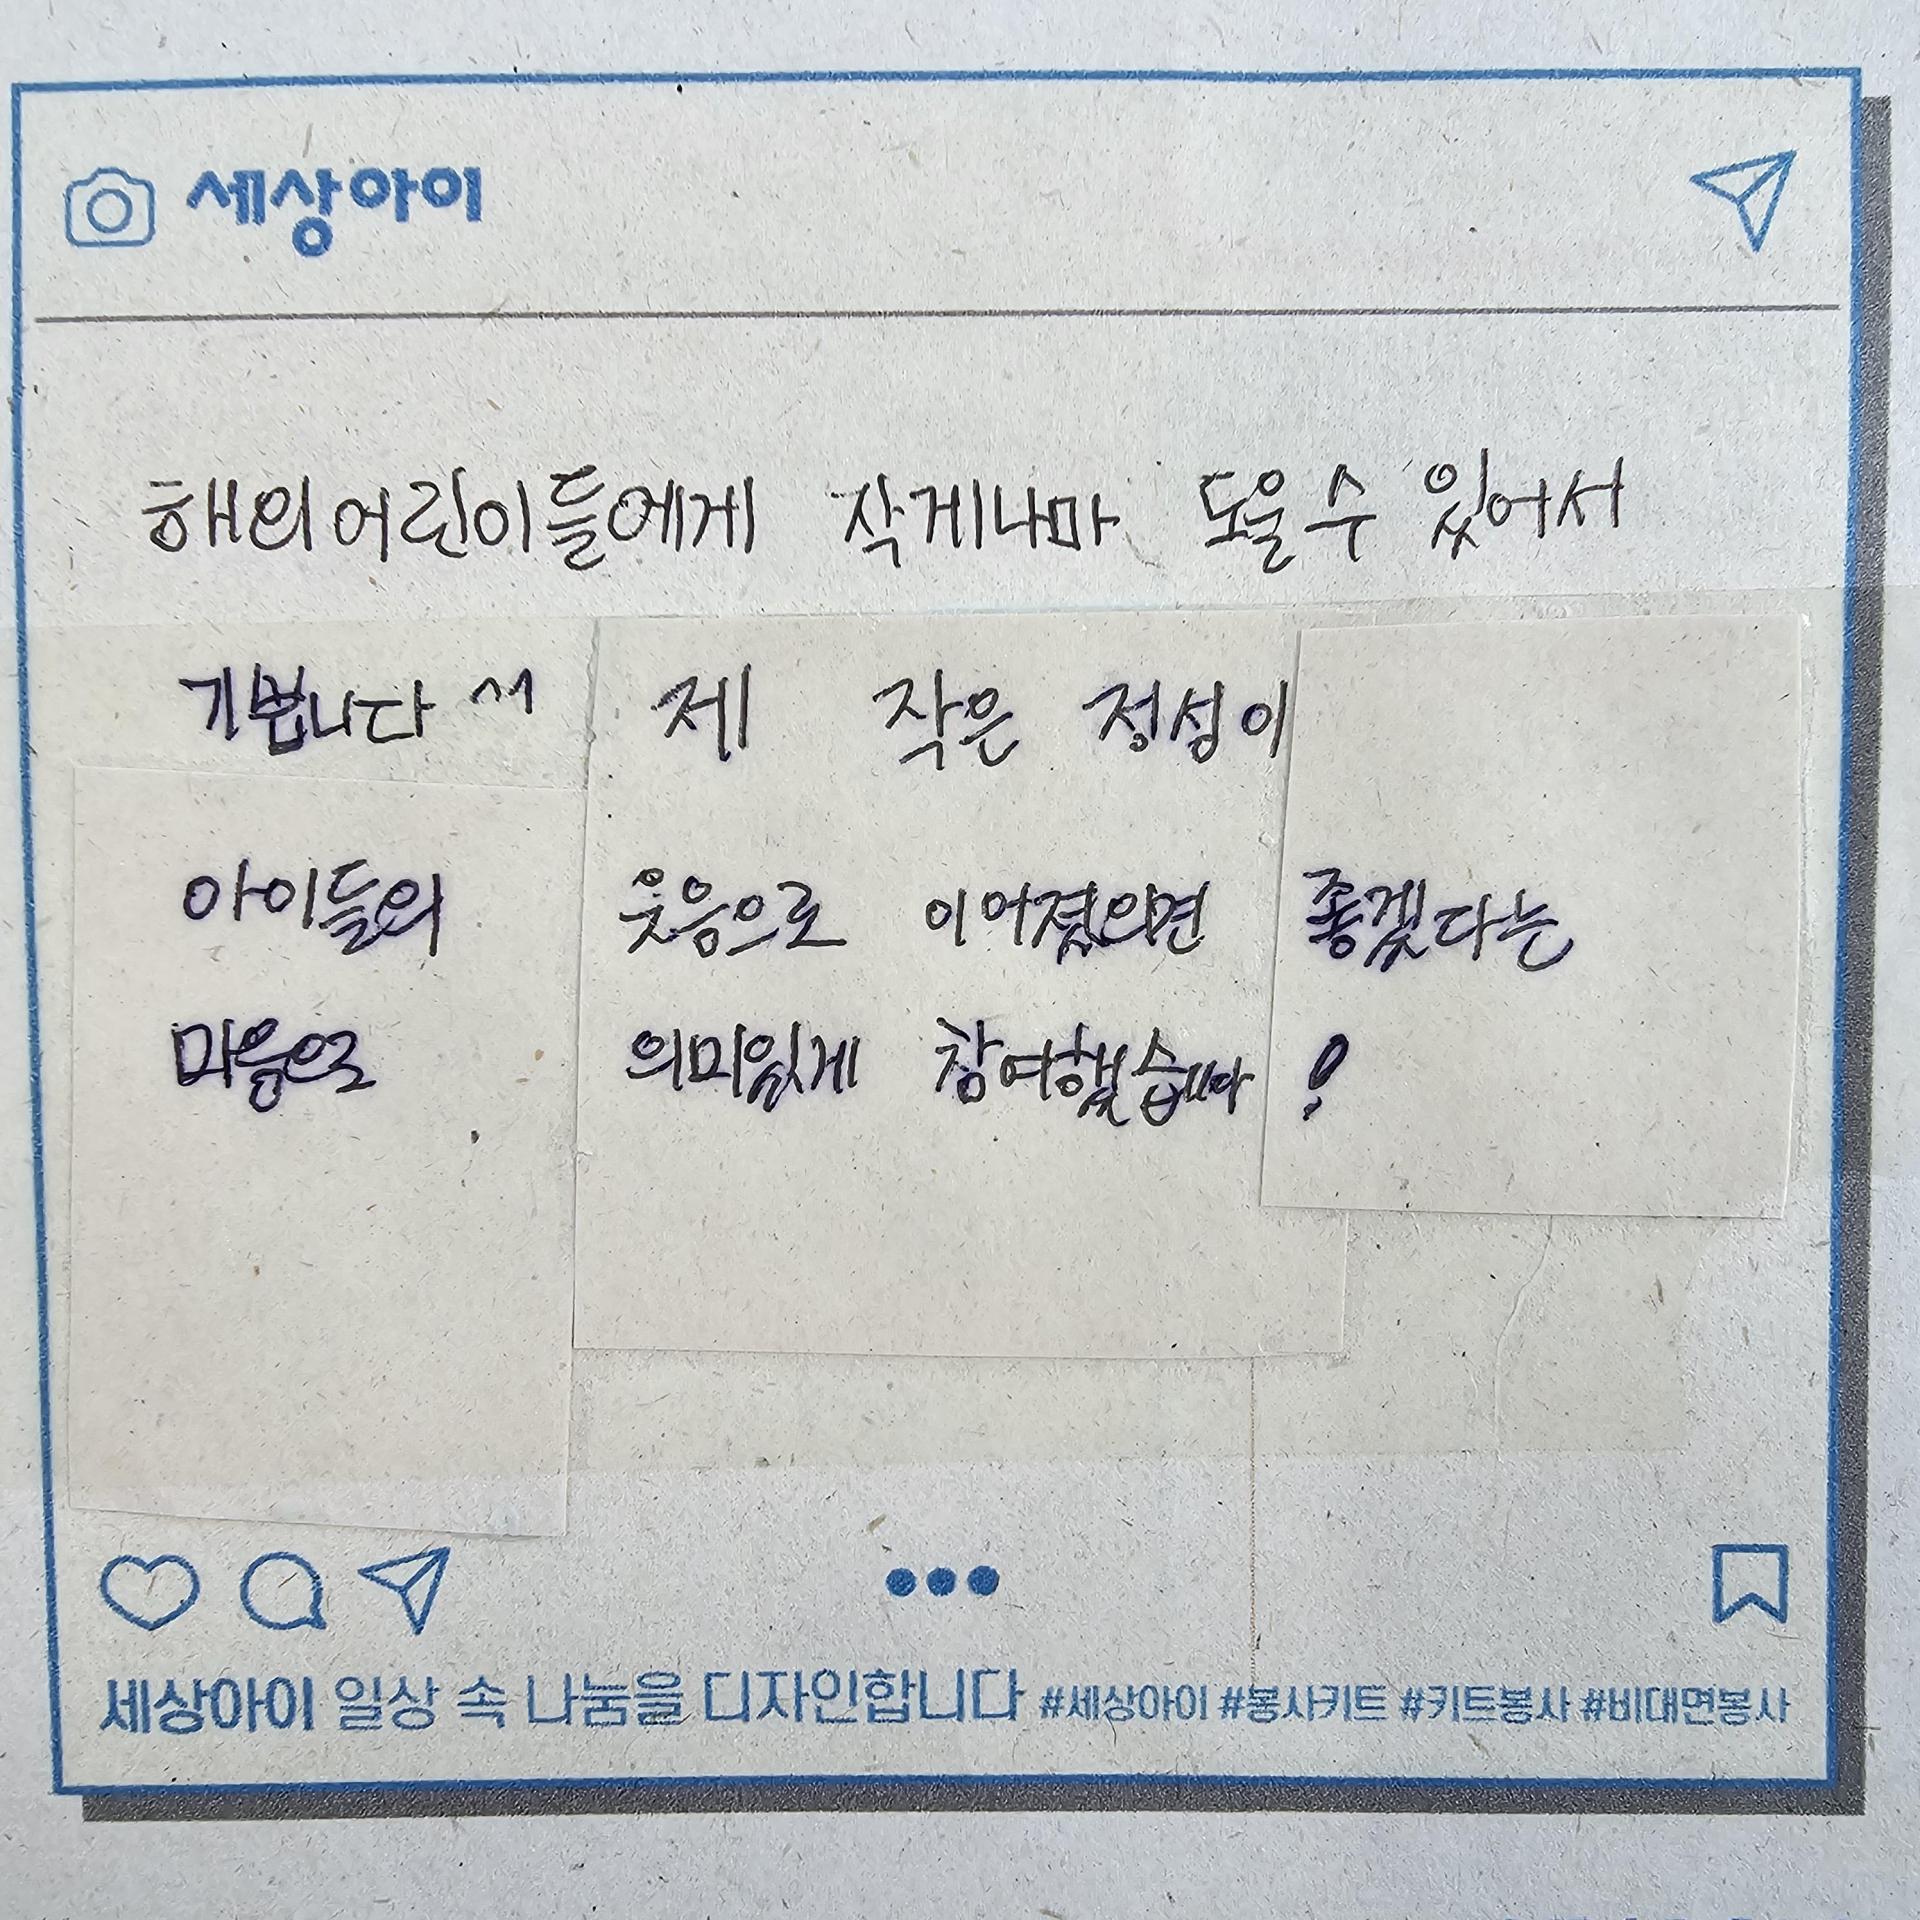 세상아이
해외 어린이들에게 작게나마 도울 수 있어서
기쁩니다 ^^ 제 작은 정성이
아이들의 웃음으로 이어졌으면 좋겠다는
마음으로 의미있게 참여했습니다!
세상아이 일상 속 나눔을 디자인합니다 #세상아이 #봉사키트 #키트봉사 #비대면봉사